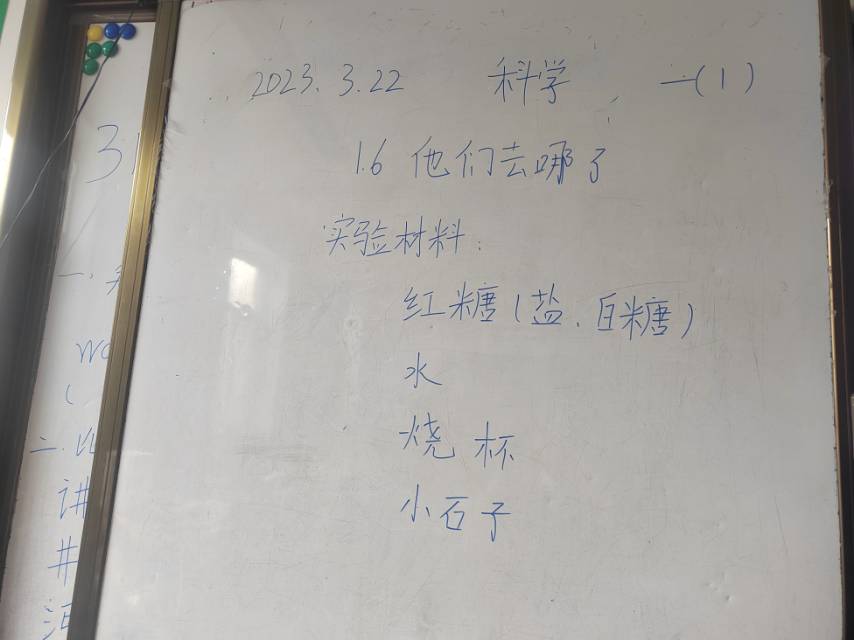 2023.3.22 科学 一(1)
1.6 他们去哪了
实验材料:
红糖(盐、白糖)
水
烧杯
小石子
3
一.
wo
(
二.
讲
井